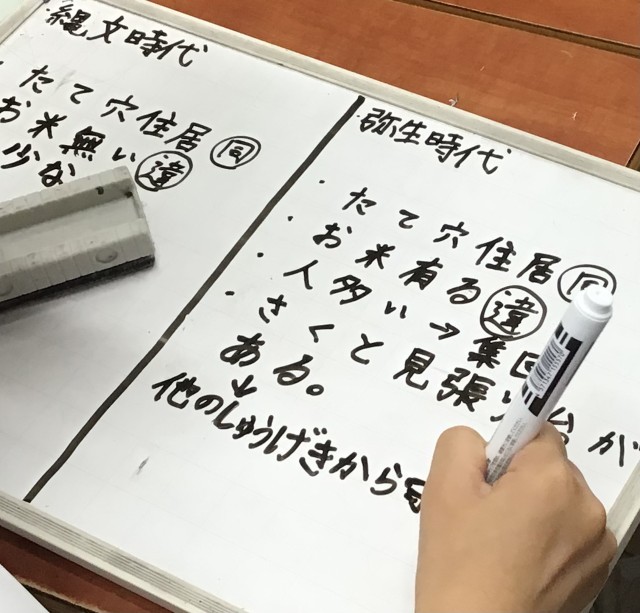 縄文時代
たて穴住居 同
お米無い 違
少な
弥生時代
・たて穴住居 同
・お米有る 違
・人多い→集
・さくと見張り台が
ある。
↓
他のしゅうげきから